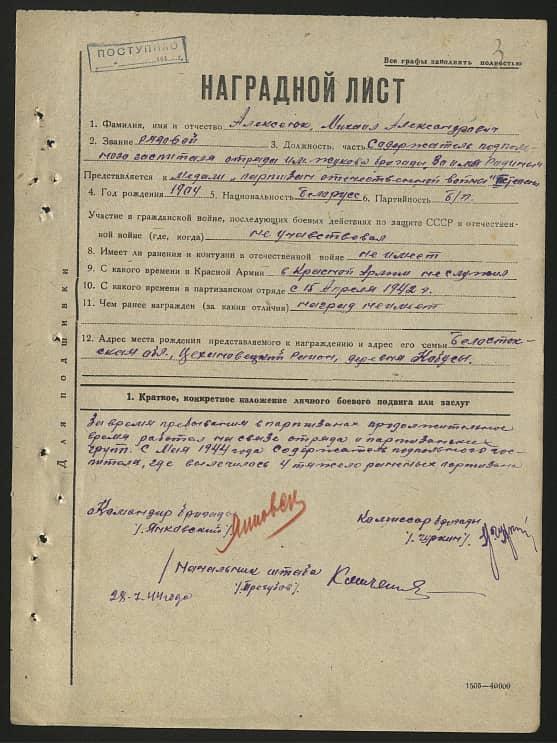 ПОСТУПИЛО
3
Все графы заполнять полностью
НАГРАДНОЙ ЛИСТ
1. Фамилия, имя и отчество Алексеюк, Михаил Александрович
2. Звание рядовой 3. Должность, часть Содержатель подполь-
ного госпиталя отряда им. Жукова бригады „За
Представляется к Медали „партизан отечественной войны"
4. Год рождения 1904 5. Национальность Белорусс 6. Партийность б/п.
Участие в гражданской войне, последующих боевых действиях по защите СССР и отечествен-
ной войне (где, когда) не участвовал
8. Имеет ли ранения и контузии в отечественной войне не имеет
9. С какого времени в Красной Армии в Красной Армии не служил
10. С какого времени в партизанском отряде с 15 Апреля 1942 г.
11. Чем ранее награжден (за какие отличия) наград не имеет
12. Адрес места рождения представляемого к награждению и адрес его семьи Белосток-
ская обл. Цехановецкий район, деревня
Для подшивки
1. Краткое, конкретное изложение личного боевого подвига или заслуг
За время пребывания в партизанах продолжительное
время работал на связе отряда и партизанских
групп. С Мая 1944 года Содержатель подпольного гос-
питаля, где вылечилось 4 тяжело раненых партизана
Командир бригады
/Янковский/.
Комиссар бригады
/. Чуркин/.
Начальник штаба
28-7-44 года
1505—40000